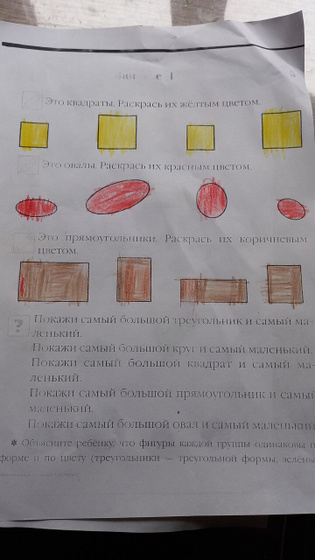 Это квадраты. Раскрась их жёлтым цветом.
Это овалы. Раскрась их красным цветом.
Это прямоугольники. Раскрась их коричневым
цветом.
? Покажи самый большой треугольник и самый ма-
ленький.
Покажи самый большой круг и самый маленький.
Покажи самый большой квадрат и самый ма-
ленький.
Покажи самый большой прямоугольник и самый
маленький.
Покажи самый большой овал и самый маленький
* Объясните ребёнку, что фигуры каждой группы одинаковы п
форме и по цвету (треугольники — треугольной формы, зелёны